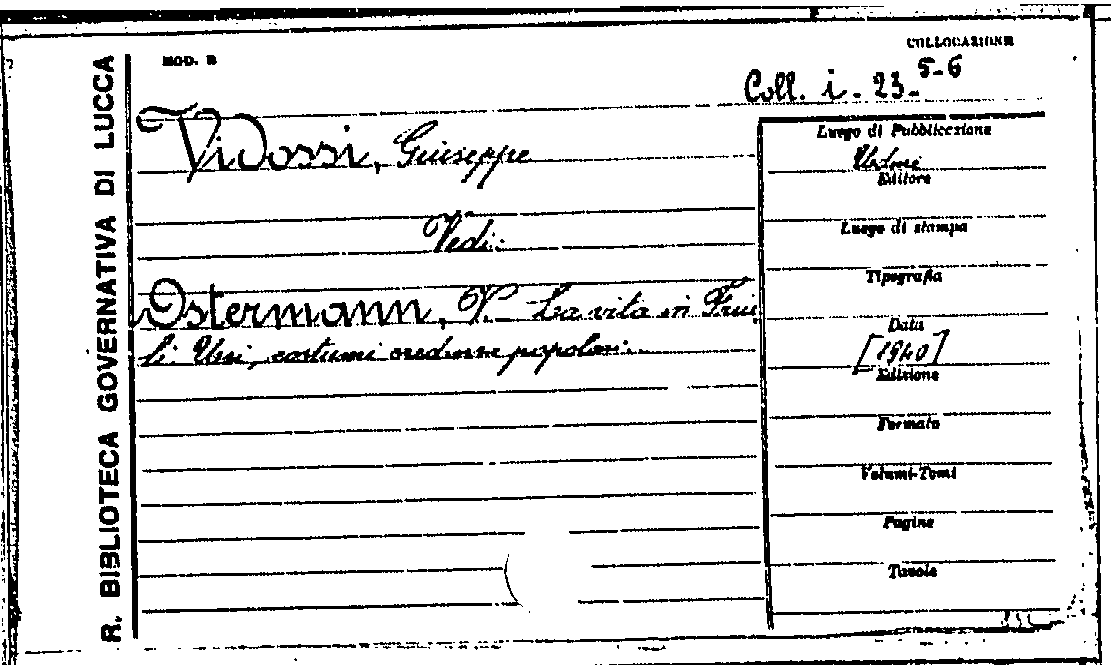 R. BIBLIOTECA GOVERNATIVA DI LUCCA
MOD. B
COLLOCAZIONE
Coll. i. 23. 5-6
Vidossi, Giuseppe
Vedi:
Ostermann, V. - La vita in Friu
li. Usi, costumi credenze popolari.
Luogo di Pubblicazione
Udine
Editore
Luogo di stampa
Tipografia
Data
[1940]
Edizione
Formato
Volumi-Tomi
Pagine
Tavole